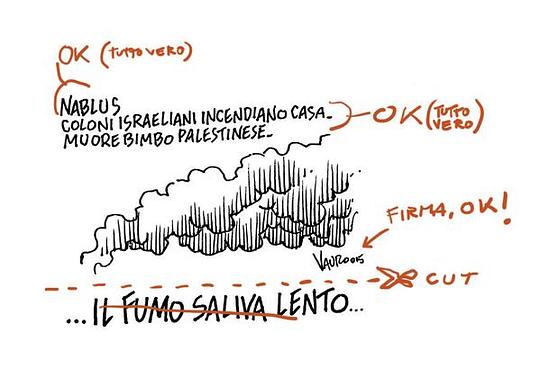 OK (TUTTO VERO)
NABLUS
COLONI ISRAELIANI INCENDIANO CASA_
MUORE BIMBO PALESTINESE_
OK (TUTTO
VERO)
FIRMA, OK!
VAURO015
CUT
...IL FUMO SALIVA LENTO...